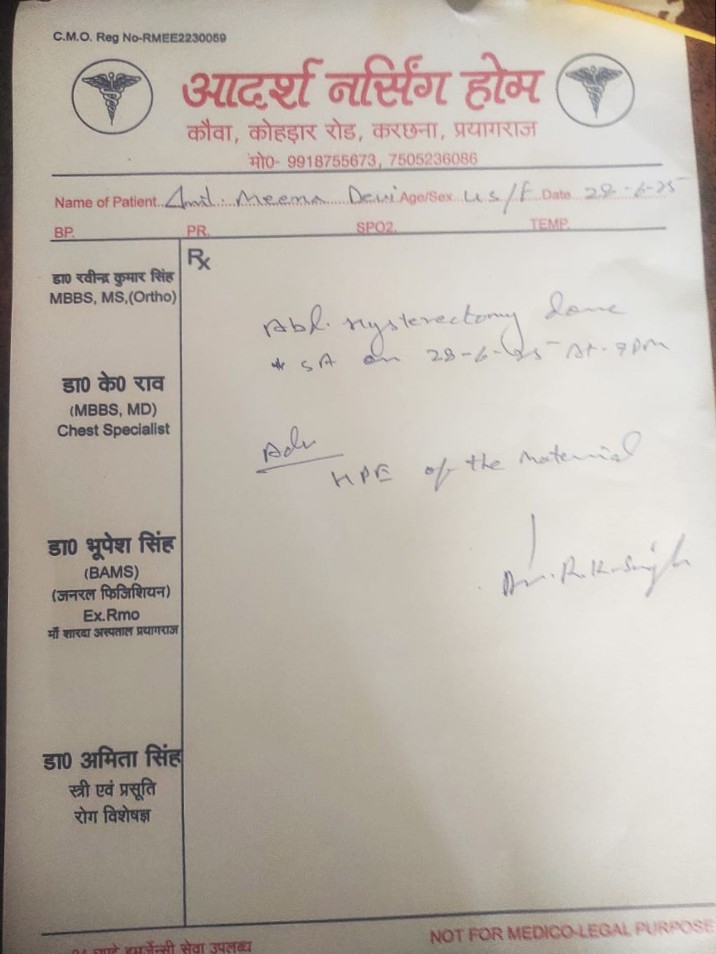 C.M.O. Reg No-RMEE2230059
आदर्श नर्सिंग होम
कौवा, कोहड़ार रोड, करछना, प्रयागराज
मो0- 9918755673, 7505236086
Name of Patient Smt. Meena Devi Age/Sex 45/F Date 28-6-25
BP. PR. SPO2. TEMP.
Rx
डा0 रवीन्द्र कुमार सिंह
MBBS, MS,(Ortho)
Abd. Hysterectomy done
SA on 28-6-25 At. 9 PM
डा0 के0 राव
(MBBS, MD)
Chest Specialist
Adv
HPE of the material
डा0 भूपेश सिंह
(BAMS)
(जनरल फिजिशियन)
Ex.Rmo
माँ शारदा अस्पताल प्रयागराज
Dr. R.K. Singh
डा0 अमिता सिंह
स्त्री एवं प्रसूति
रोग विशेषज्ञ
24 घण्टे इमर्जेन्सी सेवा उपलब्ध
NOT FOR MEDICO-LEGAL PURPOSE